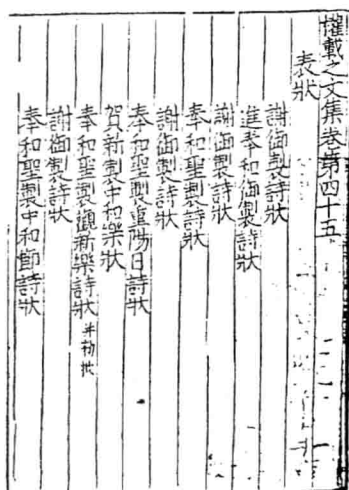 權載之文集卷第四十五
表狀
謝御製詩狀
進奉和御製詩狀
謝御製詩狀
奉和聖製詩狀
謝御製詩狀
奉和聖製重陽日詩狀
賀新製中和樂狀
奉和聖製觀新樂詩狀并劾批
謝御製詩狀
奉和聖製中和節詩狀